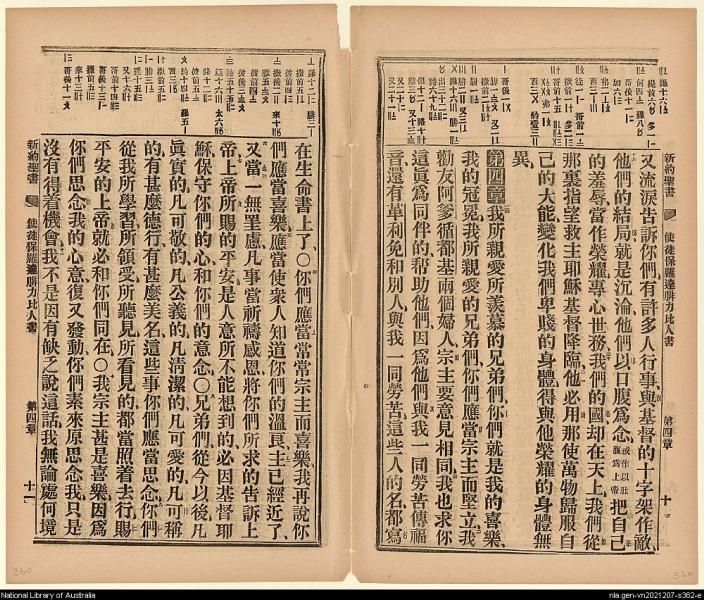 新約聖書 使徒保羅達腓力比人書 第四章 十
又流淚告訴你們有許多人行事與基督的十字架作敵
他們的結局就是沉淪他們以口腹爲念 或作以肚腹爲上帝 把自己
的羞辱當作榮耀專心世務我們的國却在天上我們從
那裏指望救主耶穌基督降臨他必用那使萬物歸服自
己的大能變化我們卑賤的身體得與他榮耀的身體無
異
第四章 我所親愛所羨慕的兄弟你們就是我的喜樂
我的冠冕我所親愛的兄弟你們應當宗主而堅立我
勸友阿爹循都基兩個婦人宗主要意見相同我也求你
這眞爲同伴的幫助他們因爲他們與我一同勞苦傳福
音還有革利免和別人與我一同勞苦這些人的名都寫
在生命書上了○你們應當常常宗主而喜樂我再說你
們應當喜樂應當使衆人知道你們的溫良主已經近了
又當一無罣慮凡事當祈禱感恩將你們所求的告訴上
帝上帝所賜的平安是人意所不能想到的必因基督耶
穌保守你們的心和你們的意念○兄弟們從今以後凡
眞實的凡可敬的凡公義的凡清潔的凡可愛的凡可稱
的有甚麽德行有甚麽美名這些事你們應當思念你們
從我所學習所領受所聽見所看見的都當照着去行賜
平安的上帝就必和你們同在○我宗主甚是喜樂因爲
你們思念我的心意復又發動你們素來原思念我只是
沒有得着機會我不是因有缺乏說這話我無論處何境
新約聖書 使徒保羅達腓力比人書 第四章 十一
360
360
National Library of Australia
nla.gen-vn2021207-s362-e